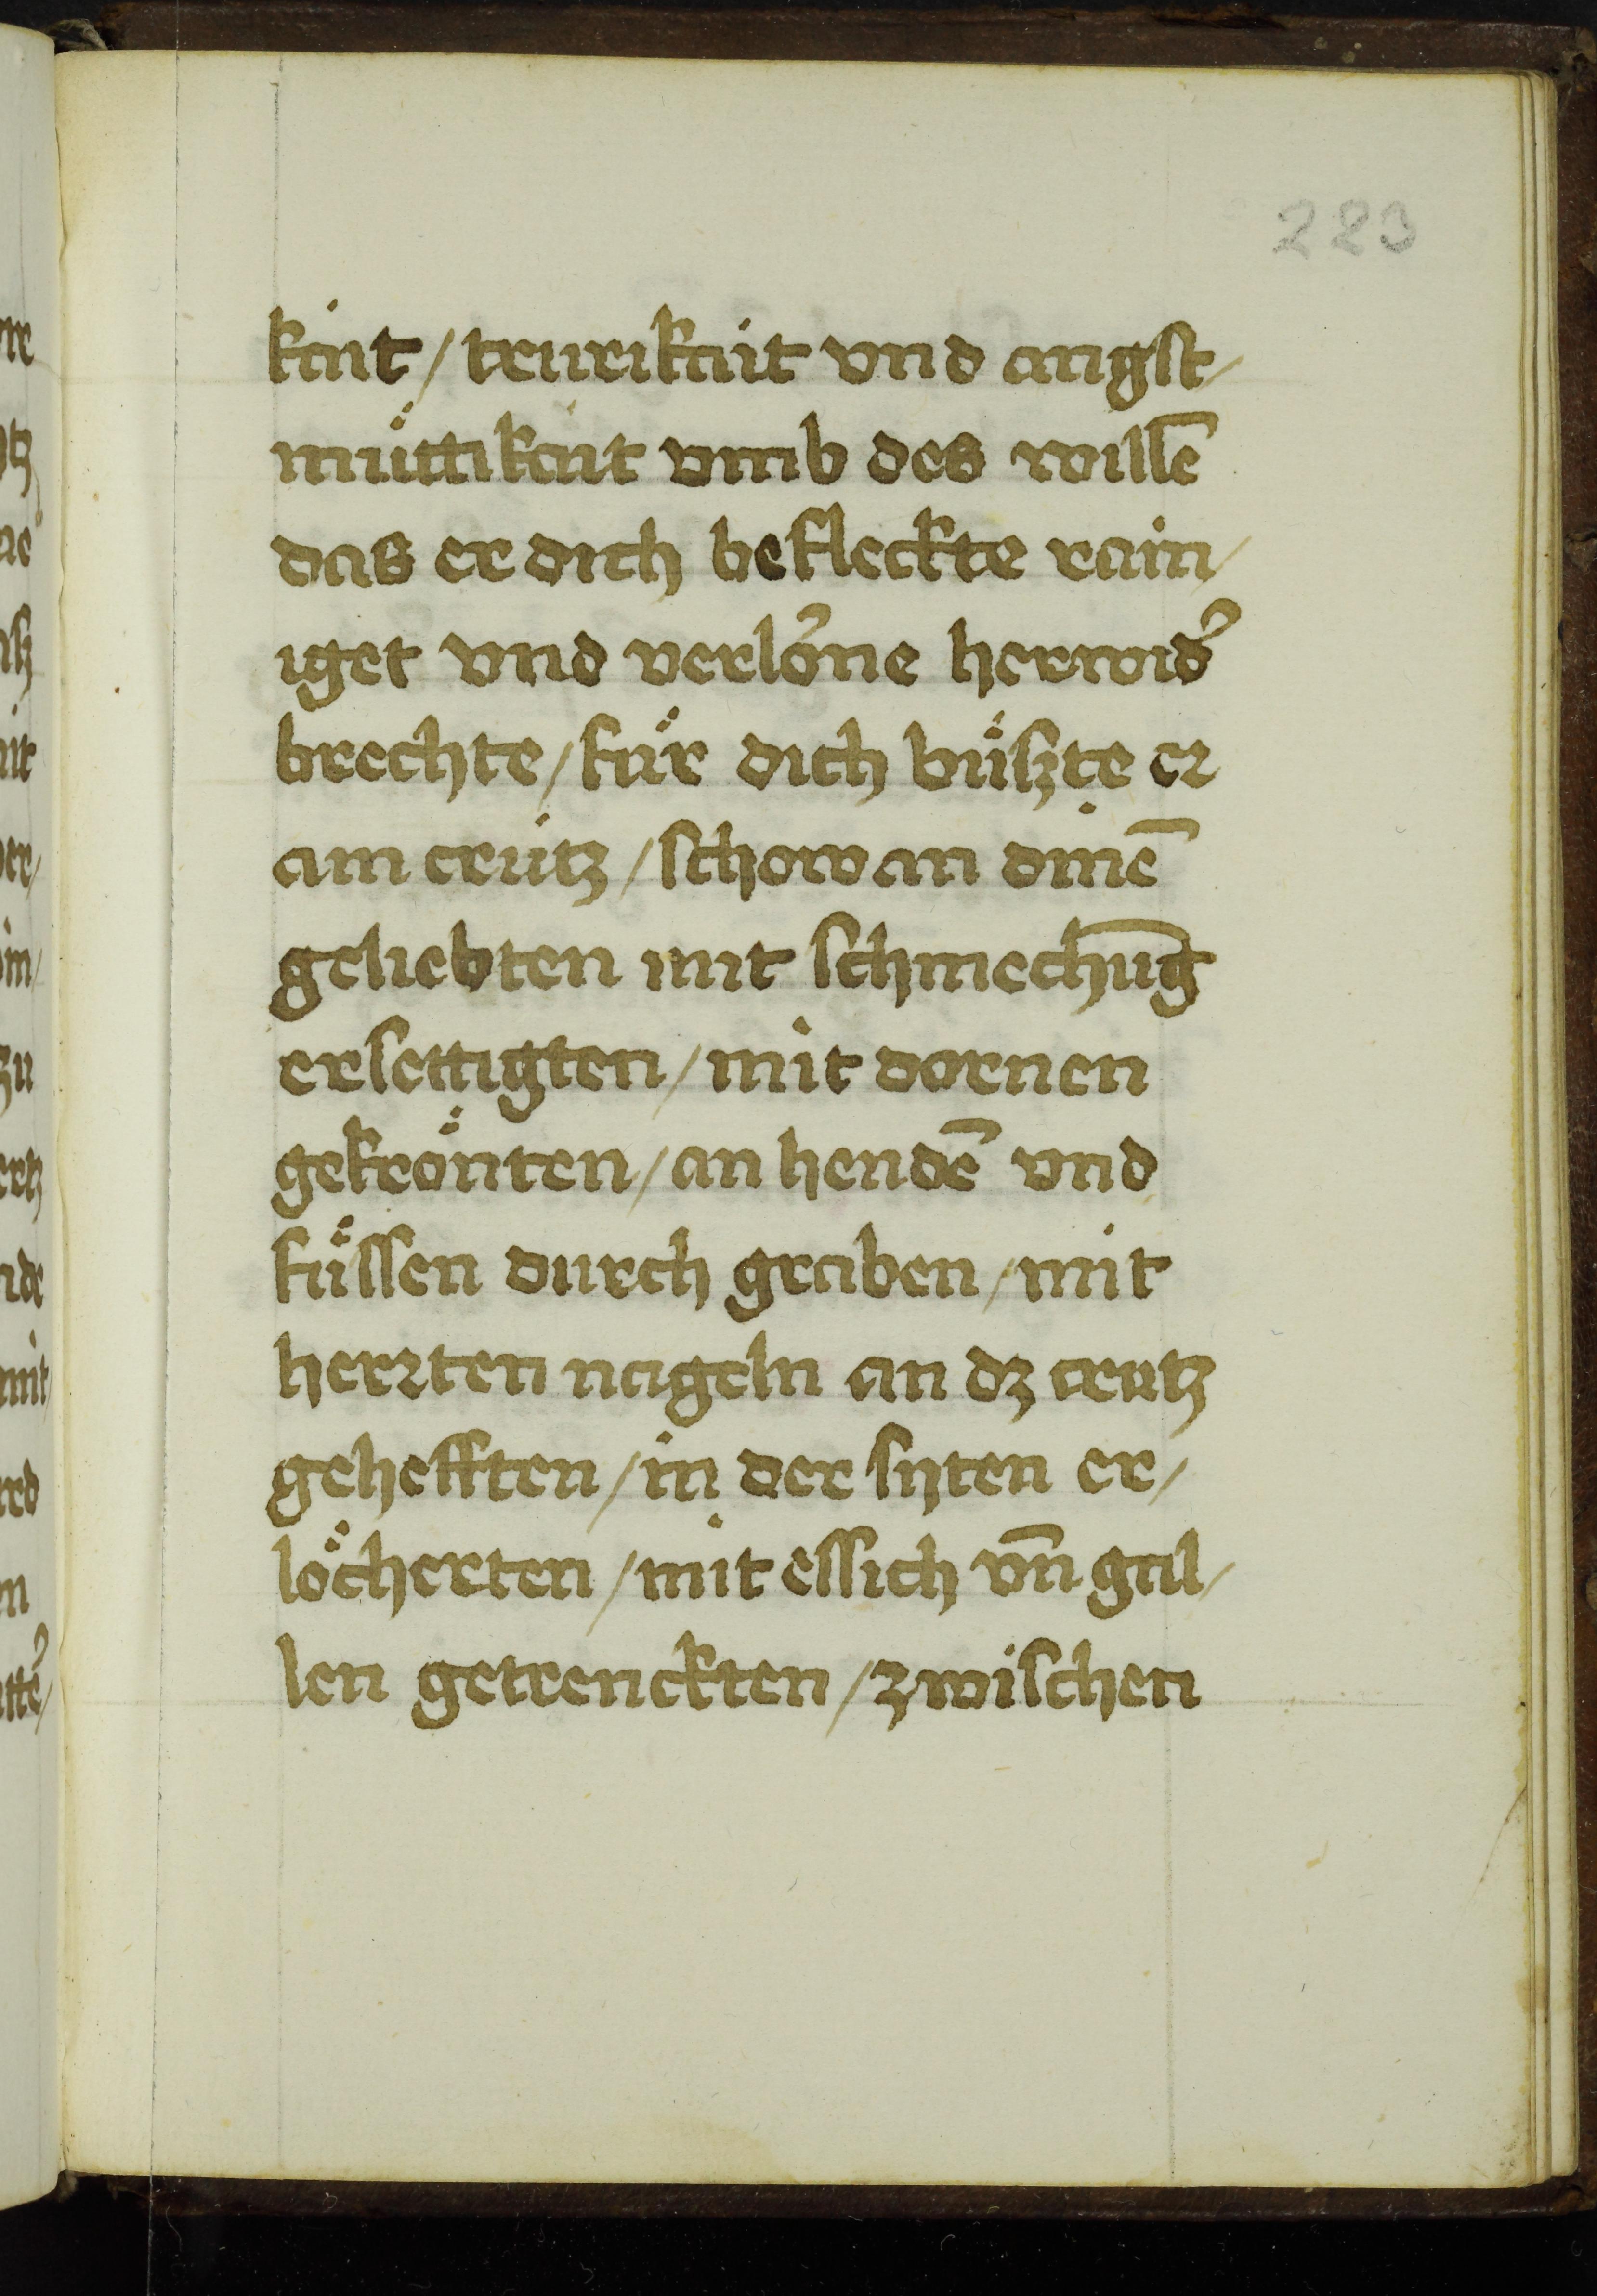 223
kait / trurikait vnd angst /
müttikait vmb des willē
das er dich befleckte rain /
iget vnd verlorne herwid᷑
brechte / für dich büszte er
am crütz / schow an dinē
geliebten mit schmechūg
ersettigten / mit dornen
gekrönten / an hendē vnd
füssen durch graben / mit
herrten nageln an dz crutz
gehefften / in der syten er /
löcherten / mit essich vn̄ gal /
len getrenckten / zwischen